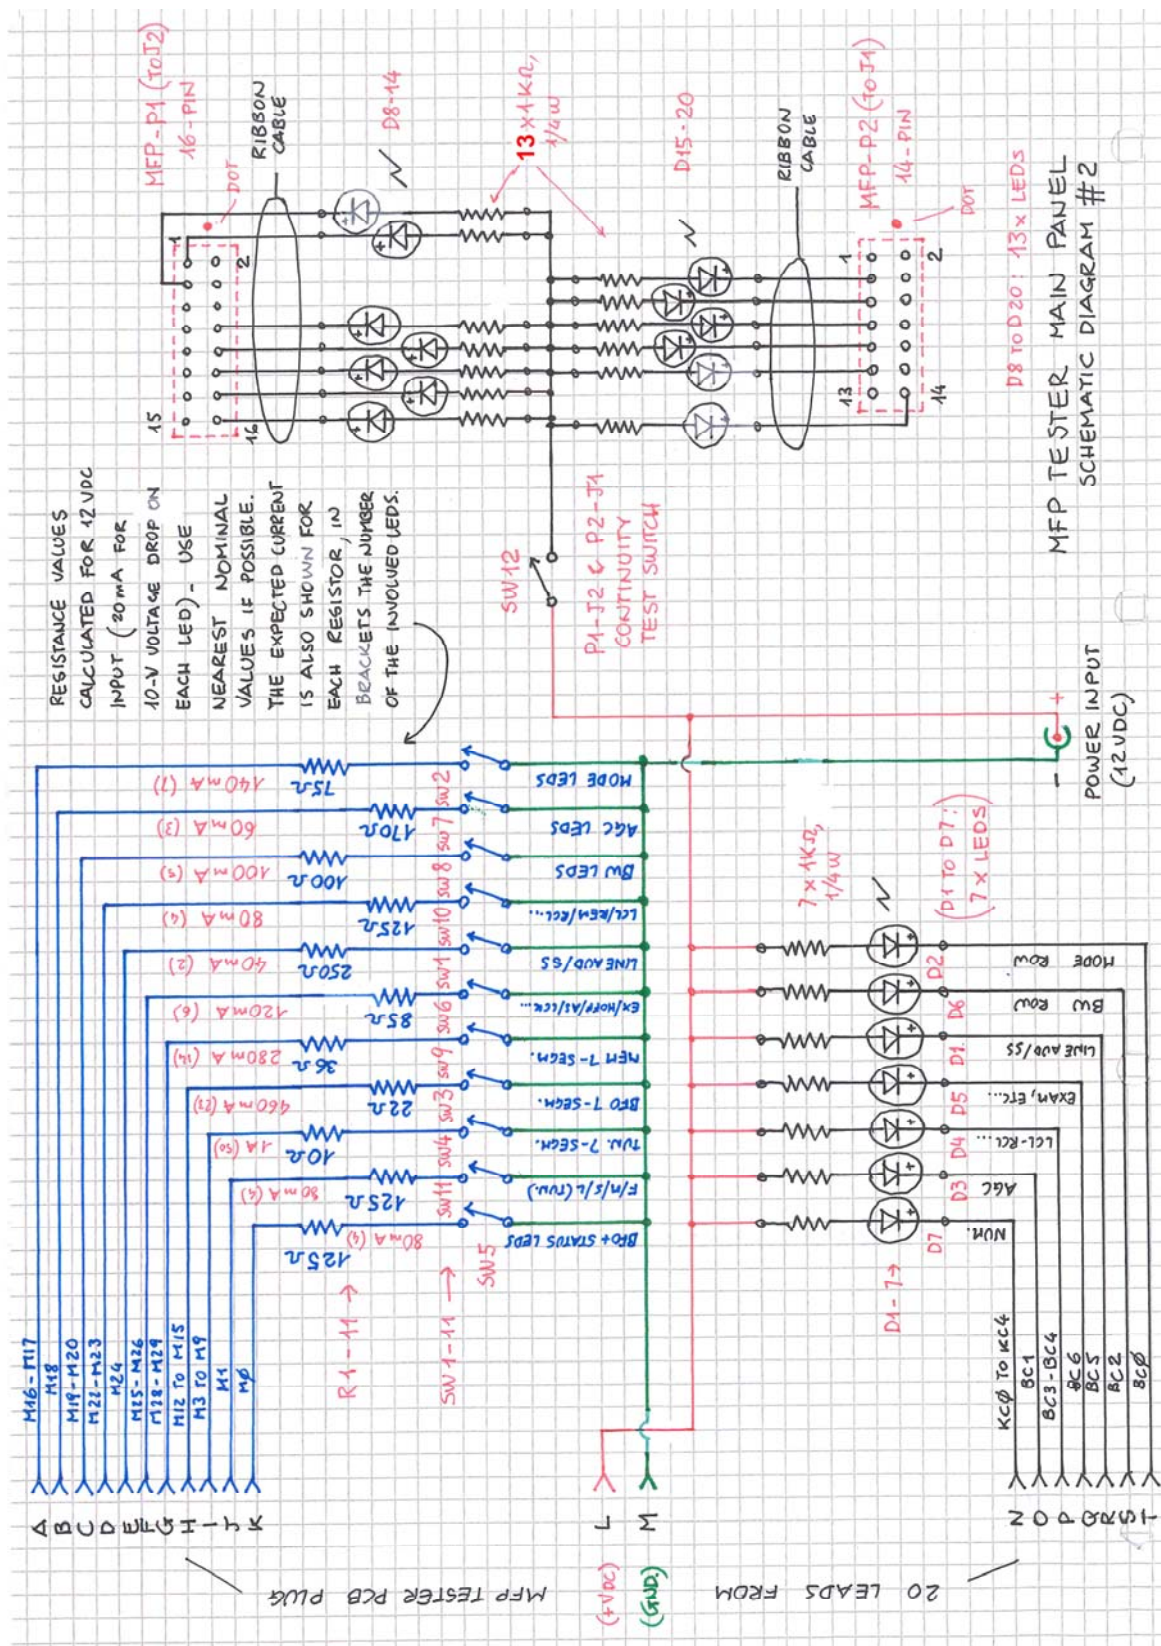 MFP-P1 (TO J2)
16-PIN
DOT
1
2
15
16
RIBBON
CABLE
D8-14
13 x 1KΩ,
1/4W
D15-20
RIBBON
CABLE
MFP-P2 (TO J1)
14-PIN
DOT
1
2
13
14
D8 TO D20: 13 x LEDS
MFP TESTER MAIN PANEL
SCHEMATIC DIAGRAM #2
RESISTANCE VALUES
CALCULATED FOR 12VDC
INPUT (20mA FOR
10-V VOLTAGE DROP ON
EACH LED)- USE
NEAREST NOMINAL
VALUES IF POSSIBLE.
THE EXPECTED CURRENT
IS ALSO SHOWN FOR
EACH RESISTOR, IN
BRACKETS THE NUMBER
OF THE INVOLVED LEDS.
SW12
P1-J2 & P2-J1
CONTINUITY
TEST SWITCH
+
-
POWER INPUT
(12VDC)
140mA (7)
75Ω
SW2
MODE LEDS
60mA (3)
170Ω
SW7
AGC LEDS
100mA (5)
100Ω
SW8
BW LEDS
80mA (4)
125Ω
SW10
LCL/REM/RCL...
40mA (2)
250Ω
SW1
LINE AUD/SS
120mA (6)
85Ω
SW6
EX/HOFF/AS/LCK...
280mA (14)
36Ω
SW9
MEM 7-SEGM.
460mA (23)
22Ω
SW3
BFO 7-SEGM.
1A (50)
10Ω
SW4
TUN. 7-SEGM.
80mA (4)
125Ω
SW11
F/M/S/L (TUN.)
80mA (4)
125Ω
SW5
BFO+ STATUS LEDS
R1-11 →
SW1-11 →
7 x 1KΩ,
1/4W
(D1 TO D7:
7 x LEDS)
D2
MODE ROW
D6
BW ROW
D1
LINE AUD/SS
D5
EXAM, ETC...
D4
LCL-RCL...
D3
AGC
D7
NUM.
D1-7→
M16-M17
M18
M19-M20
M22-M23
M24
M25-M26
M28-M29
M12 TO M15
M3 TO M9
M1
MØ
KCØ TO KC4
BC1
BC3-BC4
BC6
BC5
BC2
BCØ
A
B
C
D
E
F
G
H
I
J
K
L
M
N
O
P
Q
R
S
T
(+VDC)
(GND)
20 LEADS FROM
MFP TESTER PCB PLUG